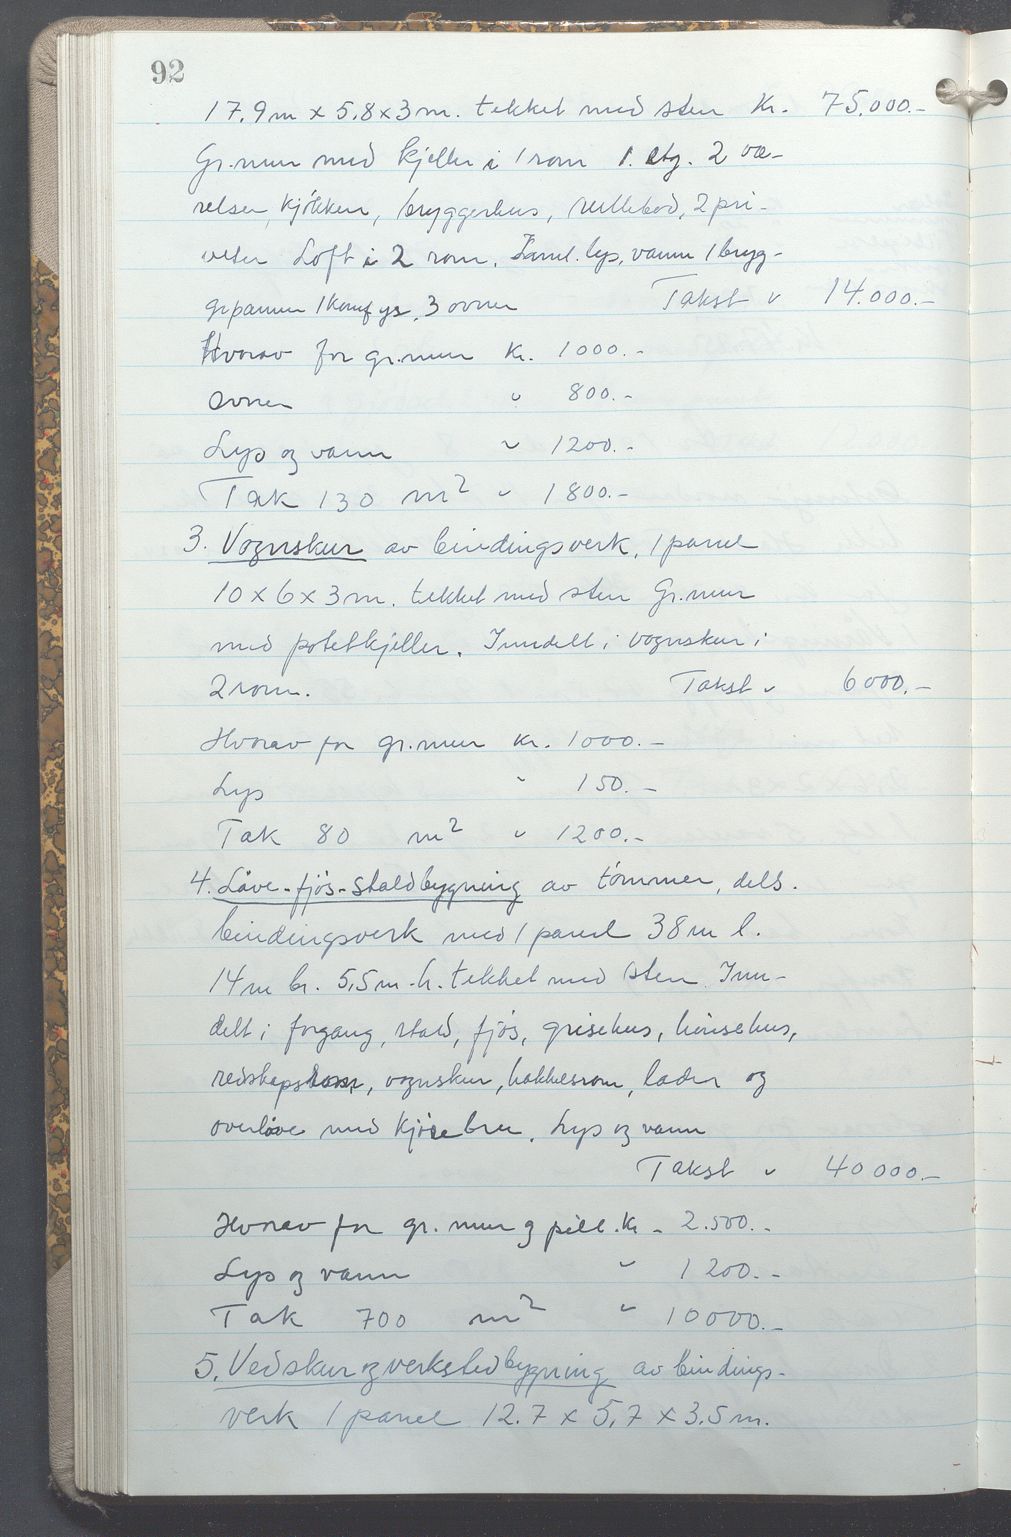 92
17,9 m x 5,8 x 3 m. tekket med sten Kr. 75.000.-
Gr.mur med kjeller i 1 rom 1. etg. 2 væ-
relser, kjøkken, bryggerhus, rullebod, 2 pri-
veter Loft i 2 rom. Innl. lys, vann 1 bryg-
gepanne 1 komfyr, 3 ovner Takst " 14.000.-
Hvorav for gr.mur Kr. 1000.-
Ovner " 800.-
Lys og vann " 1200.-
Tak 130 m2 " 1800.-
3. Vognskur av bindingsverk, 1 panel
10 x 6 x 3 m. tekket med sten Gr.mur
med potetkjeller. Inndelt i vognskur i
2 rom. Takst " 6000.-
Hvorav for gr.mur Kr. 1000.-
Lys " 150.-
Tak 80 m2 " 1200.-
4. Låve-fjøs-staldbygning av tømmer, dels.
bindingsverk med 1 panel 38 m l.
14 m br. 5,5 m.h. tekket med sten. Inn-
delt i forgang, stald, fjøs, grisehus, hönsehus,
redskapsrom, vognskur, hakkelsrom, lader og
overlåve med kjørebru. Lys og vann
Takst " 40000.-
Hvorav for gr.mur og pill. Kr - 2.500.-
Lys og vann " 1200.-
Tak 700 m2 " 10000.-
5. Vedskur og verkstedbygning av bindings-
verk 1 panel 12.7 x 5,7 x 3.5 m.